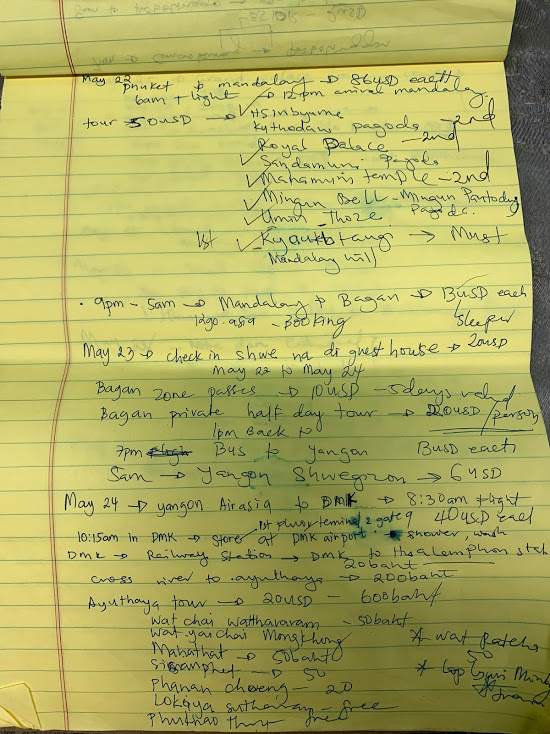 May 22
phuket to mandalay → 86USD each
6am flight → 12pm arrival mandalay
tour 50USD → ✓ Hsinbyume
Kythodaw pagoda - 2nd
✓ Royal Palace - 2nd
✓ Sandamuni Pagoda
✓ Mahamuni temple - 2nd
✓ Mingun Bell - Mingun Pagoda
✓ Umin Thoze
1st ✓ Kyauktawgyi → Must
Mandalay hill
• 9pm - 5am → Mandalay to Bagan → 13USD each
12go.asia - Booking sleeper
May 23 → check in shwe na di guest house → 20USD
May 22 to May 24
Bagan zone passes → 10USD - 5days valid
Bagan private half day tour → 20USD/person
1pm back to
7pm Bus to yangon 13USD each
5am → Yangon Shwegon → 6USD
May 24 → yangon Airasia to DMK → 8:30am flight
1st floor terminal 2 gate 9 40USD each
10:15am in DMK → store at DMK airport • shower, wash
DMK → Railway Station → DMK to
20baht
cross river to ayuthaya → 200baht
Ayuthaya tour → 20USD - 600baht
wat chai watthararam - 50baht
wat yai chai Mongkhung
Mahathat → 50baht * wat Ratcha 50
Sisanphet → 50 * Lop Buri
Phanan choeng - 20
Lokaya sutharam - free
free